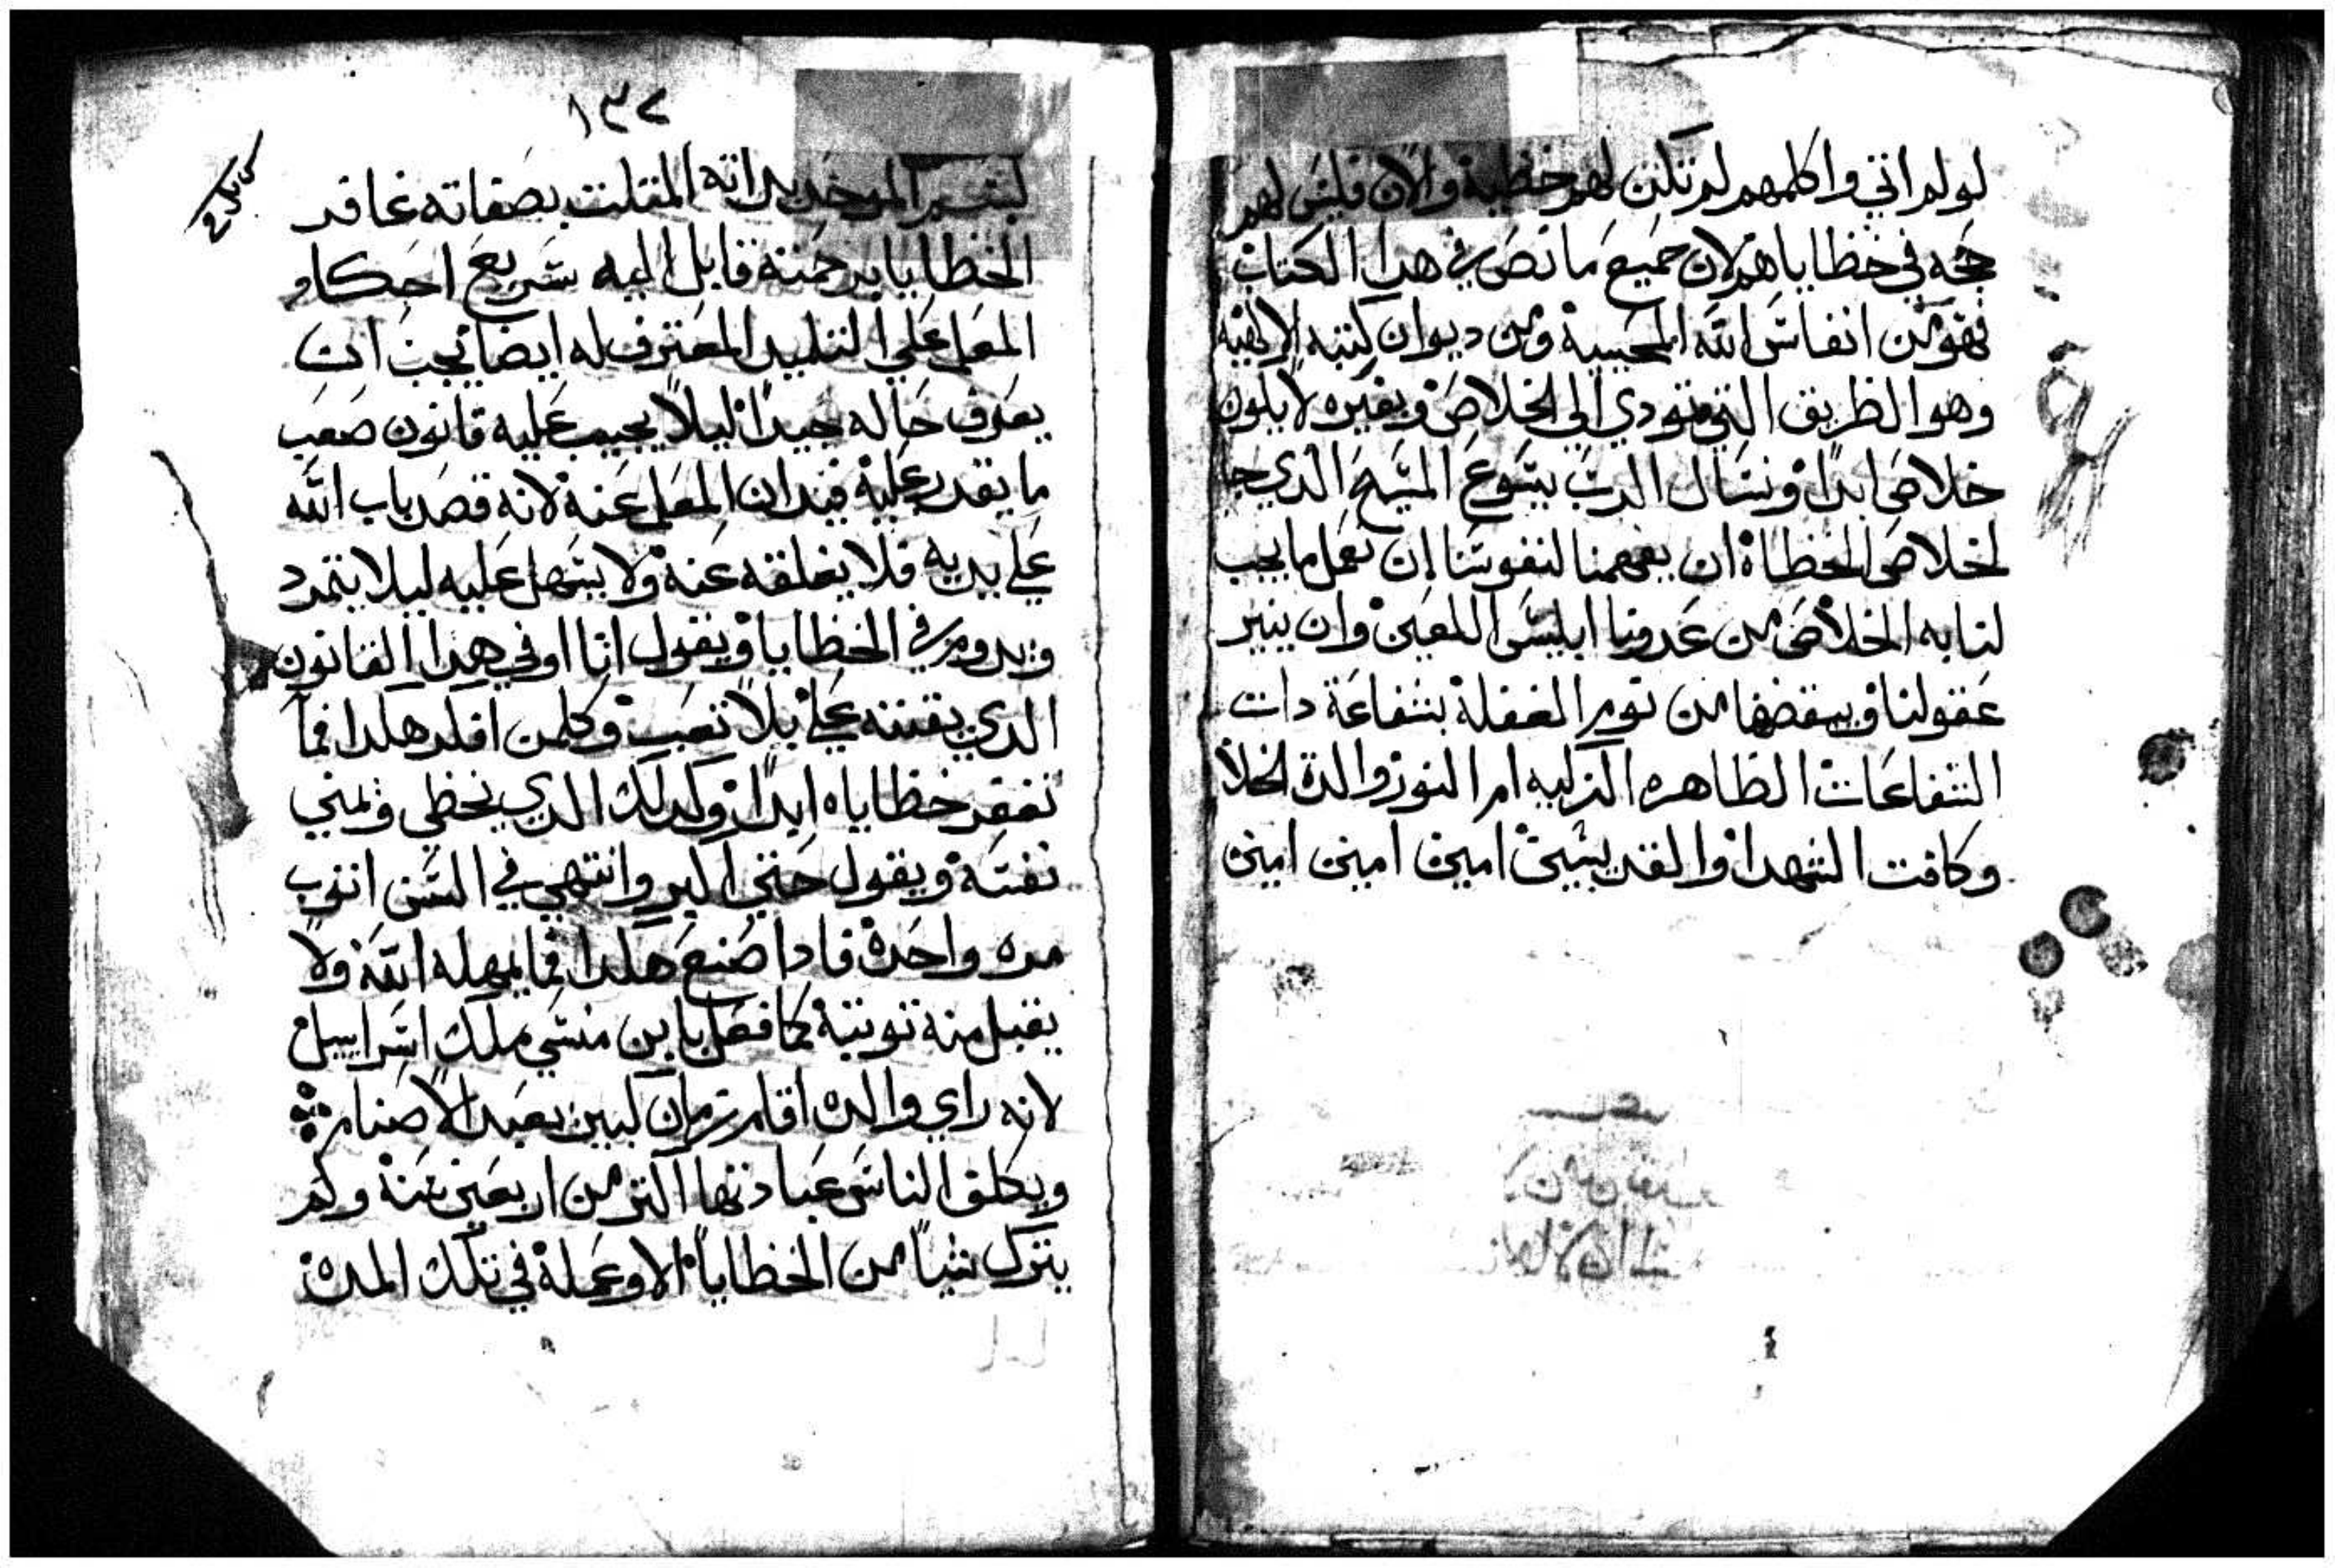 لولم اتي واكلمهم لم تكن لهم خظية والان فليس لهم
حجه في خظاياهم لان جميع ما نص في هدا الكتاب
فهو من انفاس الله المحييية ومن ديوان كتبه الالهيه
وهو الظريق التي تودي الي الخلاص وبغيره لا يكون
خلاص ابدا ونسال الرب يسوع المسيح الدي جا
لخلاص الخظاة ان يفهمنا لنفوسنا ان نعمل ما يجب
لنا به الخلاص من عدونا ابليس اللعين وان ينير
عقولنا ويبقضها من نوم الغفلة بشفاعة دات
الشفاعات الظاهره الزكيه ام النور والدة الخلاص
وكافت الشهدا والقديسين امين امين امين
١٣٢
بسم الموحد بداته المتلت بصفاته غافر
الخظايا برحمته قابل اليه سريع احكام
المعلم علي التلميد المعترف له ايضا يجب ان
يعرف حاله جيدا ليلا يجيب عليه قانون صعب
ما يقدر عليه فيدان المعلم عنه لانه قصد باب الله
علي يديه فلا يغلقه عنه ولا يسهل عليه ليلا يتمرد
ويدوم في الخظايا ويقول انا اوفي هدا القانون
الدي يقننه علي بلا تعب وكلمن افكر هكدا فما
تغفر خظاياه ابدا وكدلك الدي يخظي ويمني
نفسه ويقول حتي اكبر وانتهي في السن اتوب
مره واحدة فادا صنع هكدا فما يمهله الله ولا
يقبل منه توبته كما فعل بابن منسي ملك اسراييل
لانه راي والده اقام زمان كبير يعبد الاصنام
ويكلف الناس عبادتها اكتر من اربعين سنة ولم
يترك شيا من الخظايا الا وعمله في تلك المدة